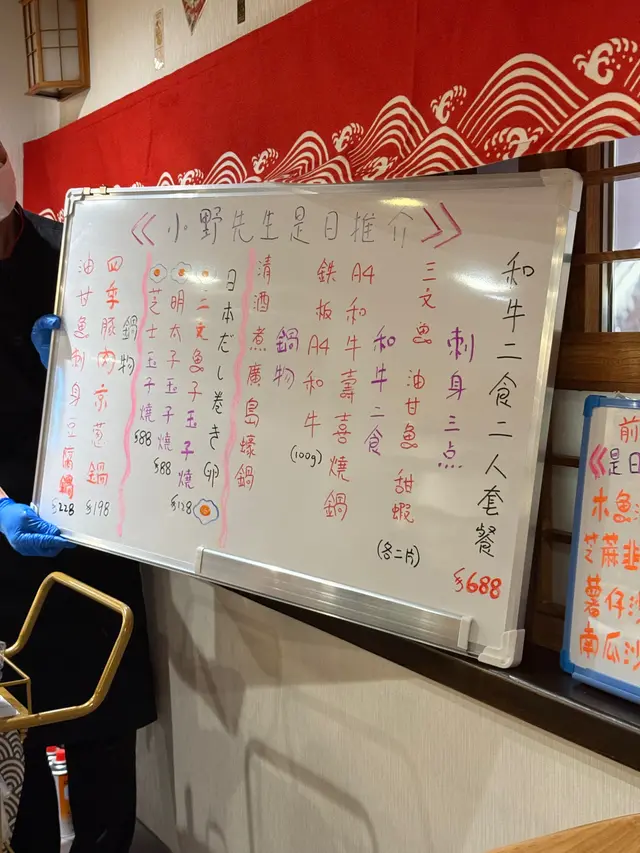 《小野先生是日推介》
和牛二食二人套餐
$688
刺身三点
三文魚 油甘魚 甜蝦
(各二片)
和牛二食
A4和牛壽喜燒鍋
鉄板A4和牛
(100g)
鍋物
清酒煮廣島蠔鍋
日本だし巻き卵
三文魚子玉子燒
$128
明太子玉子燒
$88
芝士玉子燒
$88
鍋物
四季豚肉京葱鍋
$198
油甘魚刺身豆腐鍋
$228
前
《是日
木魚
芝蔴
薯仔沙
南瓜沙